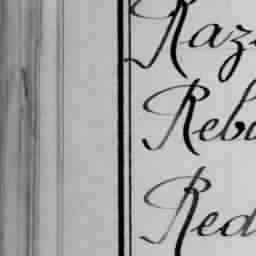 Raz
Reb
Red